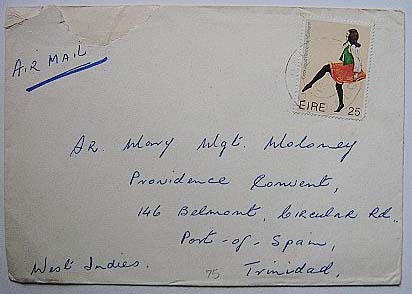 AIR MAIL
ÉIRE 25
Ar. Mary Mgt. Moloney
Providence Convent,
146 Belmont, Circular Rd.,
Port-of-Spain,
West Indies. Trinidad.
75